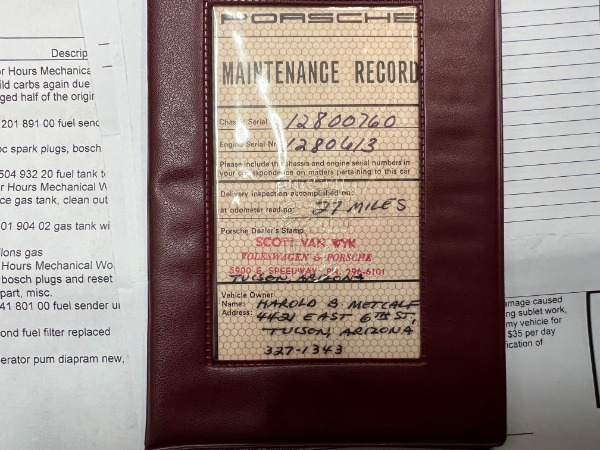 Descrip
r Hours Mechanica
ild carbs again due
ged half of the origin
201 891 00 fuel send
oc spark plugs, bosch
504 932 20 fuel tank t
r Hours Mechanical W
ce gas tank, clean out
01 904 02 gas tank wi
lions gas
Hours Mechanical Wo
bosch plugs and reset
part, misc.
41 801 00 fuel sender u
ond fuel filter replaced
erator pum diapram new,
PORSCHE
MAINTENANCE RECORD
Chassis Serial Nr. 12800760
Engine Serial Nr. 1280613
Please include the chassis and engine serial numbers in
your correspondence on matters pertaining to this car
Delivery inspection accomplished on:
at odometer reading: 27 MILES
Porsche Dealer's Stamp
SCOTT VAN WYK
VOLKSWAGEN & PORSCHE
5900 E. SPEEDWAY PH. 296-6101
TUCSON, ARIZONA
Vehicle Owner
Name: HAROLD B METCALF
Address: 4421 EAST 6TH ST,
TUCSON, ARIZONA
327-1343
amage caused
ng sublet work,
my vehicle for
$35 per day
ication of